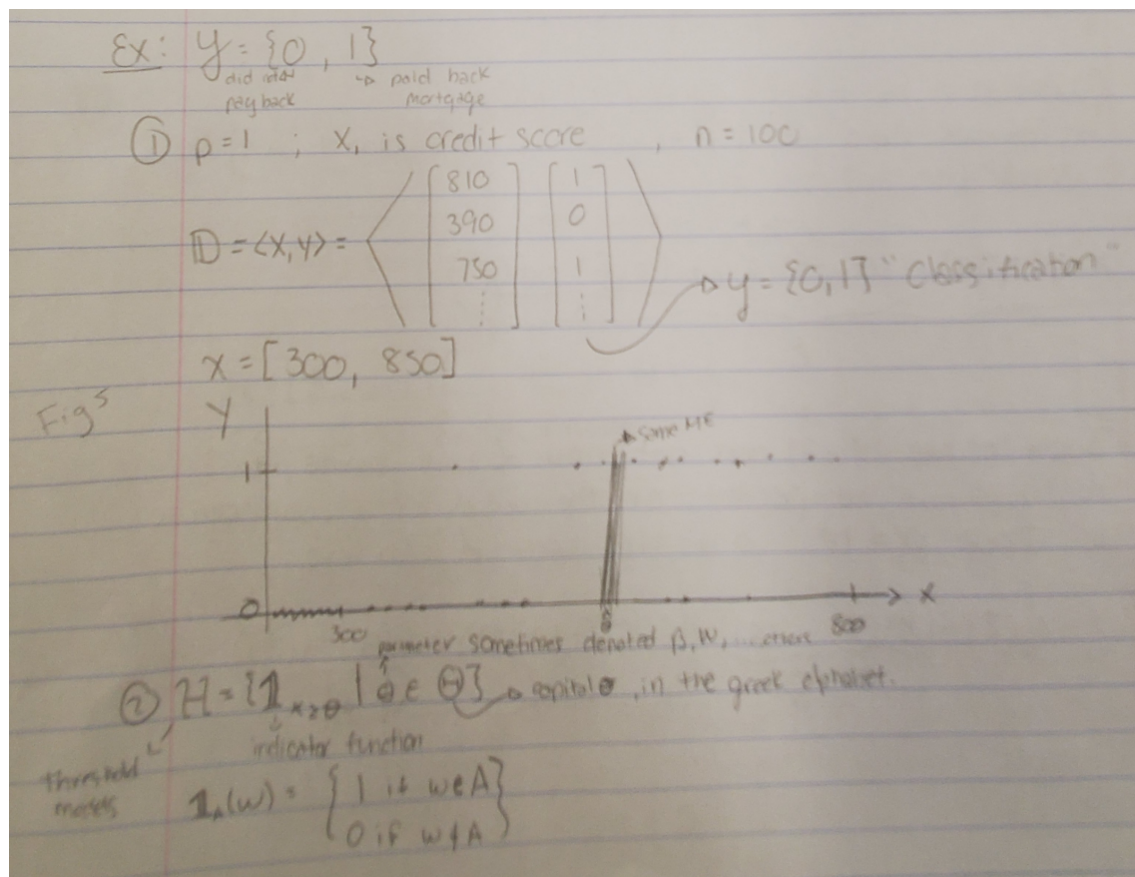 Ex: Y = {0 , 1}
did not ↳ paid back
pay back mortgage
① p = 1 ; X₁ is credit score , n = 100
𝔻 = <X, y> = < [810 390 750 ⋮] [1 0 1 ⋮] >
→ y = {0,1} "Classification"
x = [300, 850]
Fig 5
Y
→ Same ME
1
0
300
800
x
θ
parameter sometimes denoted β, W, ...
② H = {𝟙 x≥θ | θ ∈ Θ} → capital θ, in the greek alphabet.
indicator function
threshold
models
𝟙A(w) = {1 if w∈A
0 if w∉A}